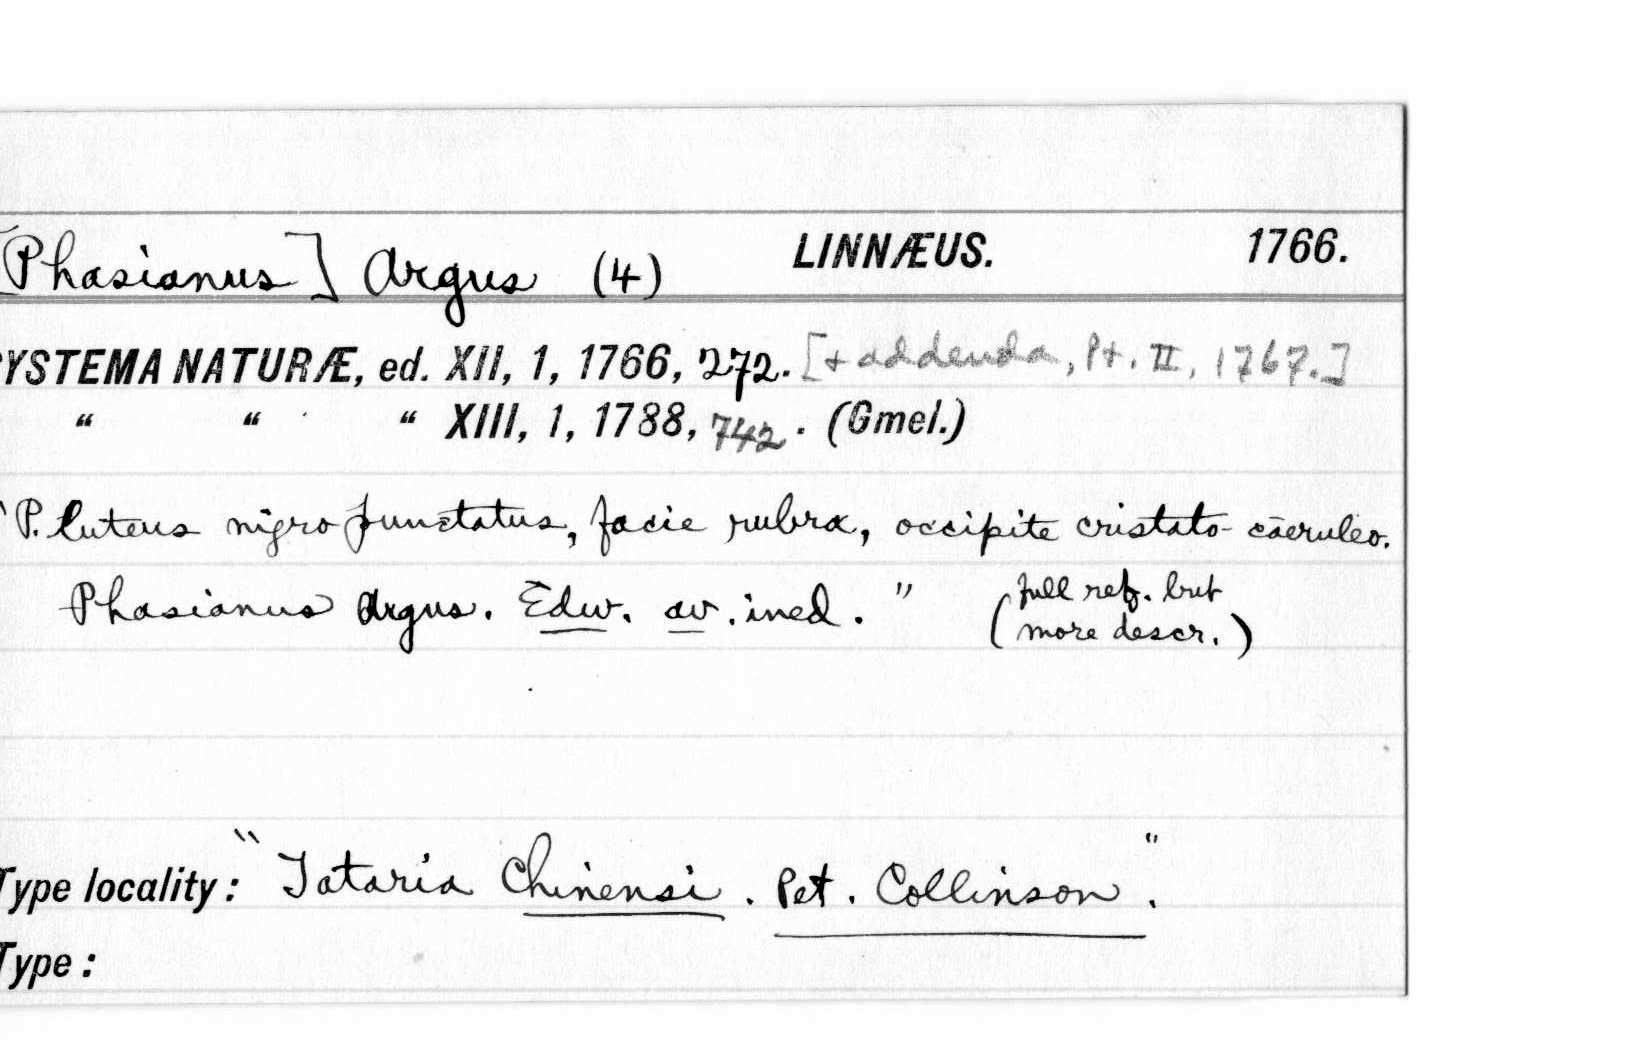 [Phasianus] Argus (4) LINNÆUS. 1766.
YSTEMA NATURÆ, ed. XII, 1, 1766, 272. [+ addenda, Pt. II, 1767.]
" " " XIII, 1, 1788, 742. (Gmel.)
"P. luteus nigro punctatus, facie rubra, occipite cristato caeruleo.
Phasianus Argus. Edw. av. ined." (full ref. but
more descr.)
Type locality: "Tataria Chinensi. Pet. Collinson".
Type: